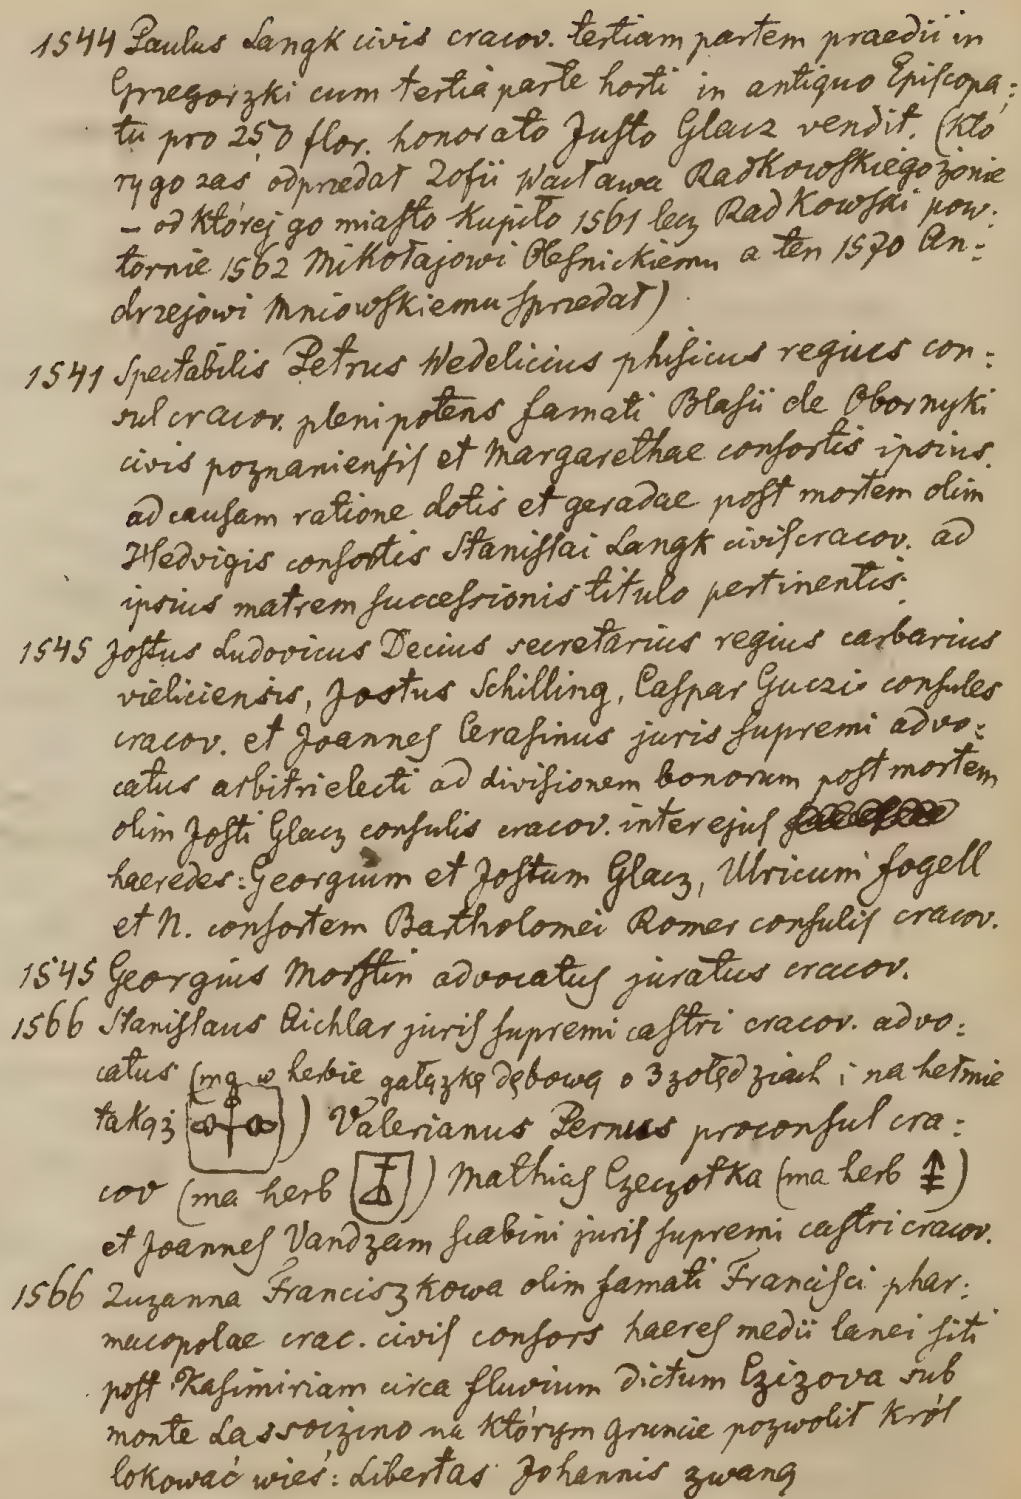 1544 Paulus Langk civis cracov. tertiam partem praedii in
Grzegorzki cum tertia parte horti in antiquo Episcopa=
tu pro 250 flor. honorato Justo Glacz vendit. (któ
rygo zaś odprzedał Zofii Wacława Radkowskiego żonie
– od której go miasto kupiło 1561 lecz Radkowski pow.
tornie 1562 Mikołajowi Olesnickiemu a ten 1570 An=
drzejowi Mniowskiemu sprzedał)
1541 Spectabilis Petrus Wedelicius phisicus regius con=
sul cracov. plenipotens famati Blasii de Obornyki
civis poznaniensis et Margarethae consortis ipsius.
ad causam ratione dotis et geradae post mortem olim
Hedvigis consortis Stanislai Langk civis cracov. ad
ipsius matrem successionis titulo pertinentis.
1545 Jostus Ludovicus Decius secretarius regius carbarius
vieliciensis, Jostus Schilling, Caspar Guczio consules
cracov. et Joannes Cerasinus juris supremi advo=
catus arbitri electi ad divisionem bonorum post mortem
olim Josti Glacz consulis cracov. inter ejus
haeredes: Georgium et Jostum Glacz, Ulricum Fogell
et N. consortem Bartholomei Romer consulis cracov.
1545 Georgius Morstin advocatus juratus cracov.
1566 Stanislaus Aichlar juris supremi castri cracov. advo=
catus (ma w herbie gałązkę dębową o 3 żołędziach i na hełmie
takąż ) Valerianus Pernus proconsul cra=
cov (ma herb ) Mathias Czeczotka (ma herb )
et Joannes Vandzam scabini juris supremi castri cracov.
1566 Zuzanna Franciszkowa olim famati Francisci phar=
macopolae crac. civis consors haeres medii lanei siti
post Kasimiriam circa fluvium dictum Czizova sub
monte Lassoczino na którym gruncie pozwolił król
lokować wieś: Libertas Johannis zwaną